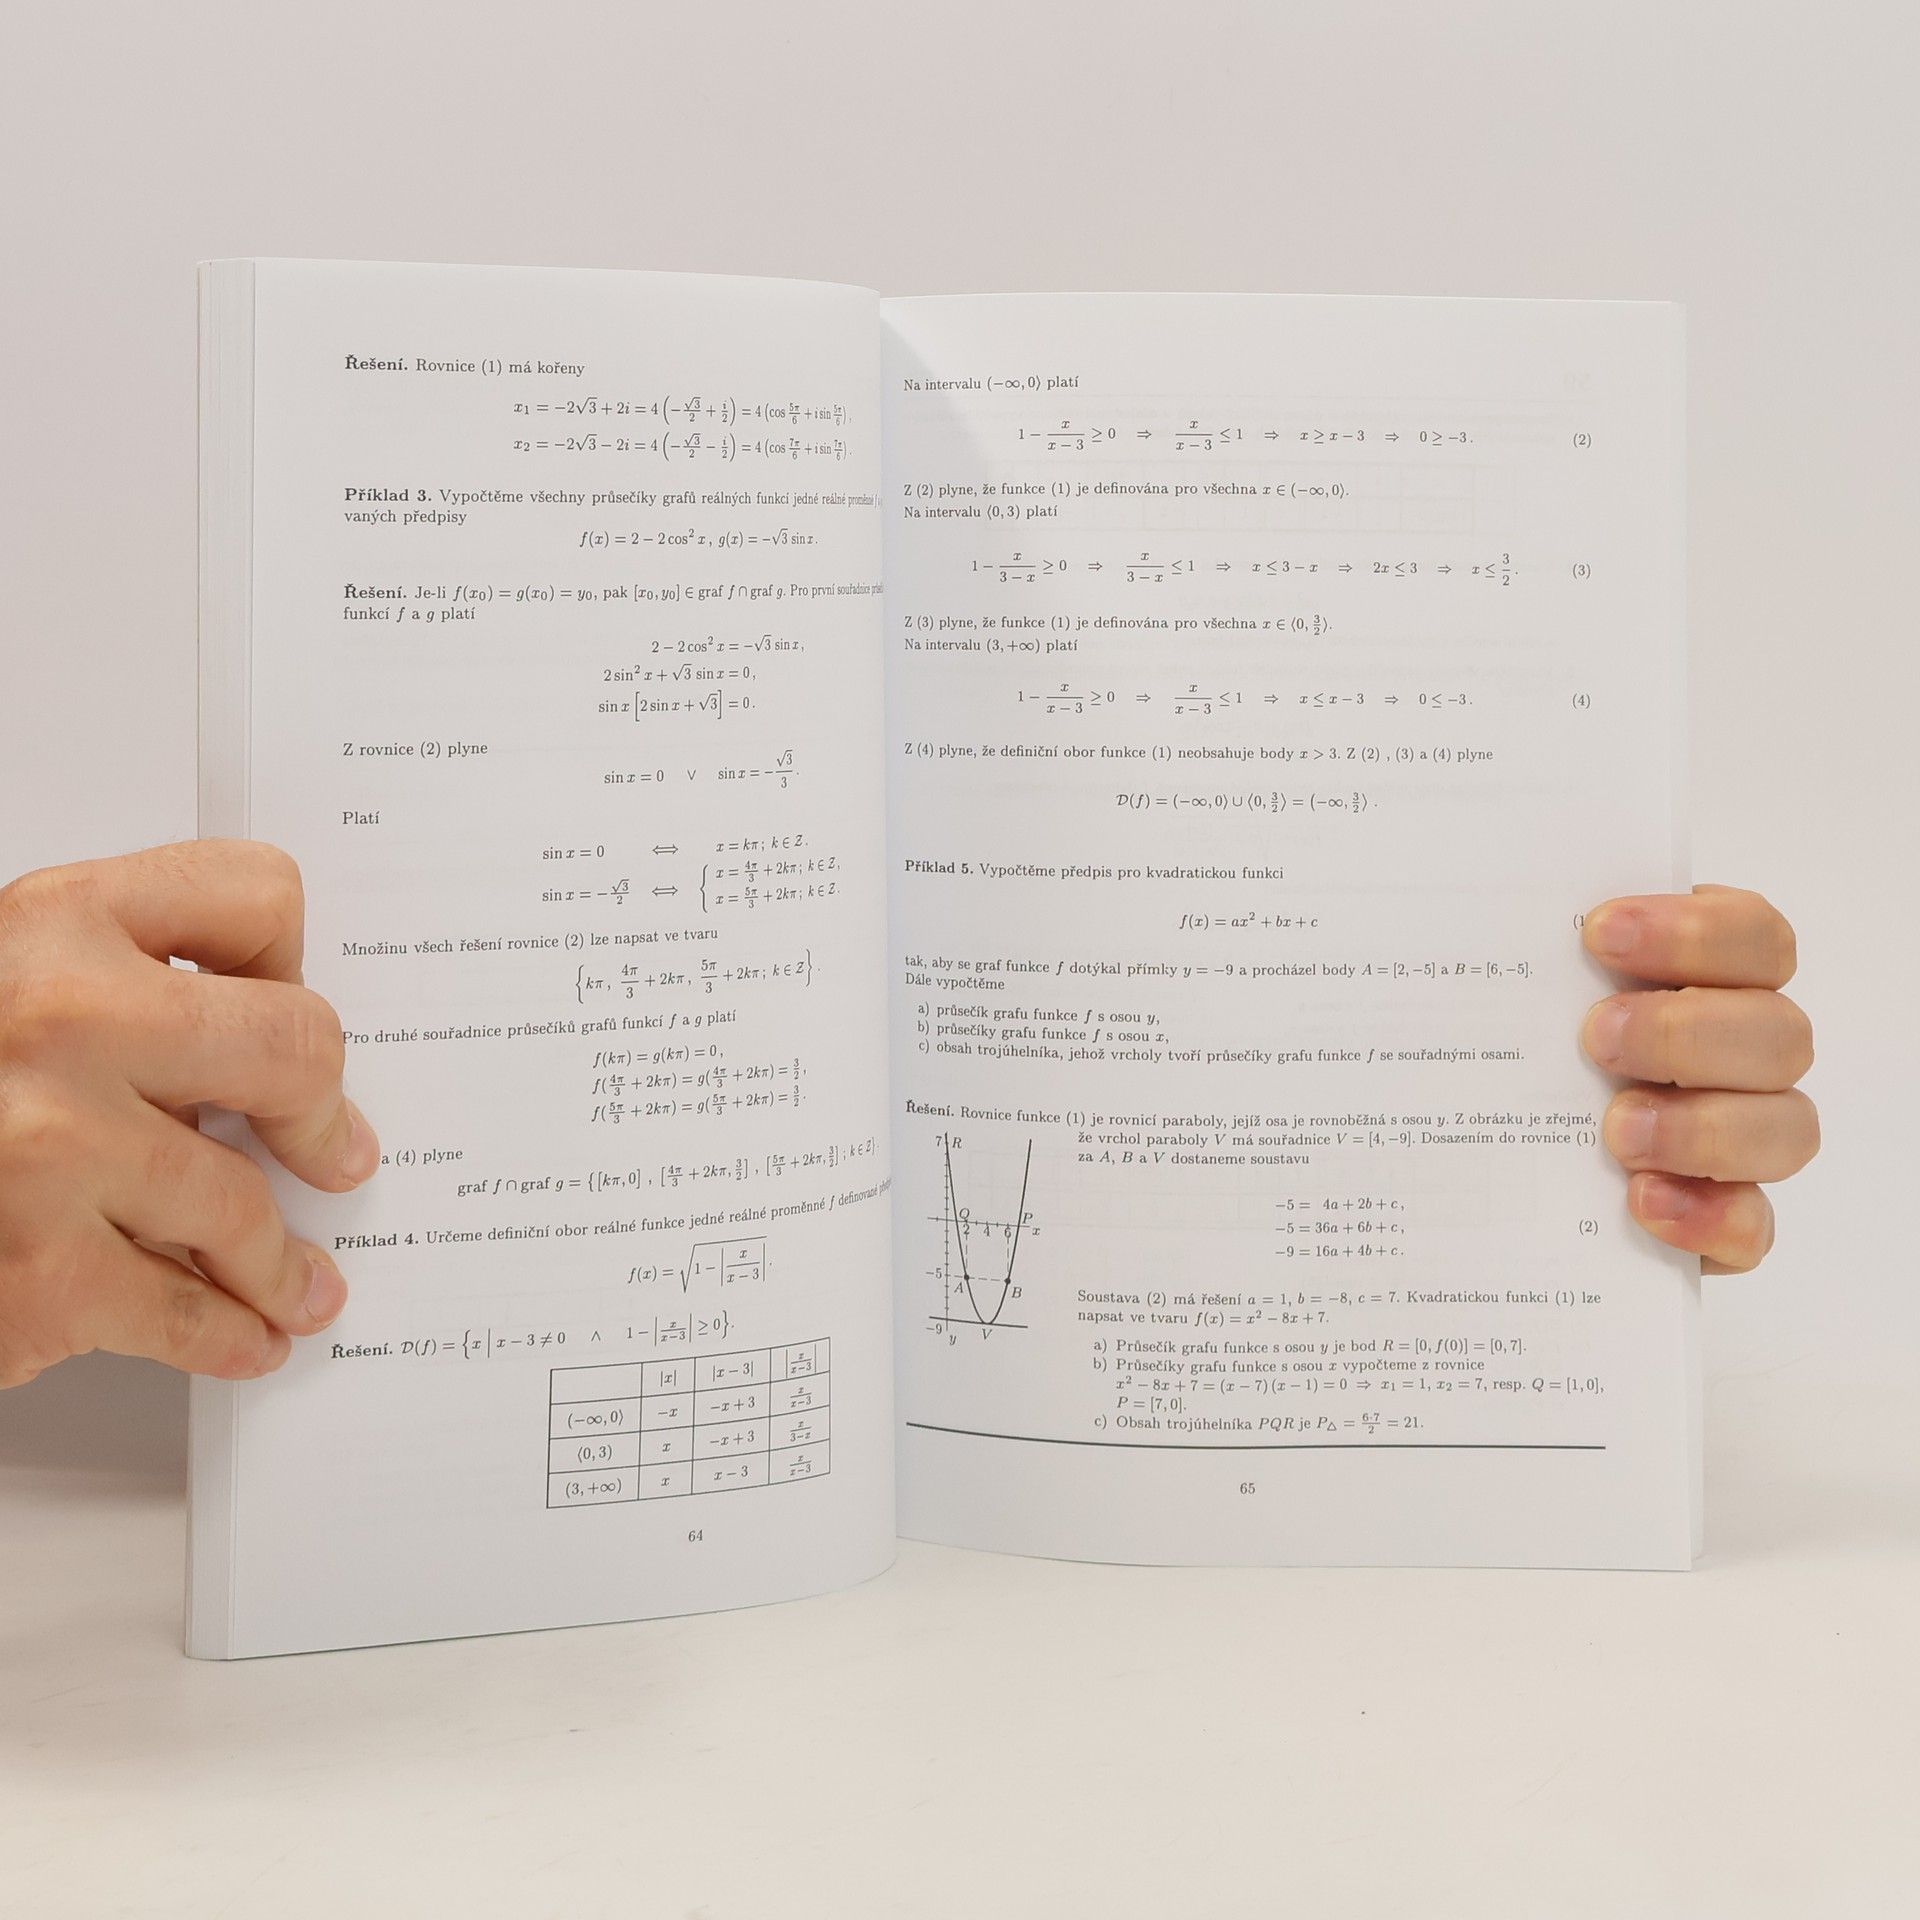 Řešení. Rovnice (1) má kořeny
x₁ = −2√3 + 2i = 4 (−√3/2 + i/2) = 4 (cos 5π/6 + i sin 5π/6),
x₂ = −2√3 − 2i = 4 (−√3/2 − i/2) = 4 (cos 7π/6 + i sin 7π/6).
Příklad 3. Vypočtěme všechny průsečíky grafů reálných funkcí jedné reálné proměnné f
vaných předpisy
f(x) = 2 − 2 cos² x, g(x) = −√3 sin x.
Řešení. Je-li f(x₀) = g(x₀) = y₀, pak [x₀, y₀] ∈ graf f ∩ graf g. Pro první souřadnice
funkcí f a g platí
2 − 2 cos² x = −√3 sin x,
2 sin² x + √3 sin x = 0,
sin x [2 sin x + √3] = 0.
Z rovnice (2) plyne
sin x = 0 ∨ sin x = −√3/3.
Platí
sin x = 0 ⟺ x = kπ; k ∈ Z.
sin x = −√3/2 ⟺ { x = 4π/3 + 2kπ; k ∈ Z,
x = 5π/3 + 2kπ; k ∈ Z.
Množinu všech řešení rovnice (2) lze napsat ve tvaru
{kπ, 4π/3 + 2kπ, 5π/3 + 2kπ; k ∈ Z}.
Pro druhé souřadnice průsečíků grafů funkcí f a g platí
f(kπ) = g(kπ) = 0,
f(4π/3 + 2kπ) = g(4π/3 + 2kπ) = 3/2,
f(5π/3 + 2kπ) = g(5π/3 + 2kπ) = 3/2.
a (4) plyne
graf f ∩ graf g = {[kπ, 0], [4π/3 + 2kπ, 3/2], [5π/3 + 2kπ, 3/2]; k ∈ Z}.
Příklad 4. Určeme definiční obor reálné funkce jedné reálné proměnné f definované
f(x) = √(1 − |x/(x − 3)|).
Řešení. D(f) = {x | x − 3 ≠ 0 ∧ 1 − |x/(x−3)| ≥ 0}.
|x| |x − 3| |x/(x−3)|
(−∞, 0⟩ −x −x + 3 x/(x−3)
⟨0, 3) x −x + 3 x/(3−x)
(3, +∞) x x − 3 x/(x−3)
64
Na intervalu (−∞, 0⟩ platí
1 − x/(x − 3) ≥ 0 ⇒ x/(x − 3) ≤ 1 ⇒ x ≥ x − 3 ⇒ 0 ≥ −3. (2)
Z (2) plyne, že funkce (1) je definována pro všechna x ∈ (−∞, 0⟩.
Na intervalu ⟨0, 3) platí
1 − x/(3 − x) ≥ 0 ⇒ x/(3 − x) ≤ 1 ⇒ x ≤ 3 − x ⇒ 2x ≤ 3 ⇒ x ≤ 3/2. (3)
Z (3) plyne, že funkce (1) je definována pro všechna x ∈ ⟨0, 3/2⟩.
Na intervalu (3, +∞) platí
1 − x/(x − 3) ≥ 0 ⇒ x/(x − 3) ≤ 1 ⇒ x ≤ x − 3 ⇒ 0 ≤ −3. (4)
Z (4) plyne, že definiční obor funkce (1) neobsahuje body x > 3. Z (2) , (3) a (4) plyne
D(f) = (−∞, 0⟩ ∪ ⟨0, 3/2⟩ = (−∞, 3/2⟩ .
Příklad 5. Vypočtěme předpis pro kvadratickou funkci
f(x) = ax² + bx + c (1
tak, aby se graf funkce f dotýkal přímky y = −9 a procházel body A = [2, −5] a B = [6, −5].
Dále vypočtěme
a) průsečík grafu funkce f s osou y,
b) průsečíky grafu funkce f s osou x,
c) obsah trojúhelníka, jehož vrcholy tvoří průsečíky grafu funkce f se souřadnými osami.
Řešení. Rovnice funkce (1) je rovnicí paraboly, jejíž osa je rovnoběžná s osou y. Z obrázku je zřejmé,
že vrchol paraboly V má souřadnice V = [4, −9]. Dosazením do rovnice (1)
za A, B a V dostaneme soustavu
7 R
Q P
2 4 6 x
−5
A B
−9 y V
−5 = 4a + 2b + c,
−5 = 36a + 6b + c, (2)
−9 = 16a + 4b + c.
Soustava (2) má řešení a = 1, b = −8, c = 7. Kvadratickou funkci (1) lze
napsat ve tvaru f(x) = x² − 8x + 7.
a) Průsečík grafu funkce s osou y je bod R = [0, f(0)] = [0, 7].
b) Průsečíky grafu funkce s osou x vypočteme z rovnice
x² − 8x + 7 = (x − 7)(x − 1) = 0 ⇒ x₁ = 1, x₂ = 7, resp. Q = [1, 0],
P = [7, 0].
c) Obsah trojúhelníka PQR je P△ = 6·7/2 = 21.
65